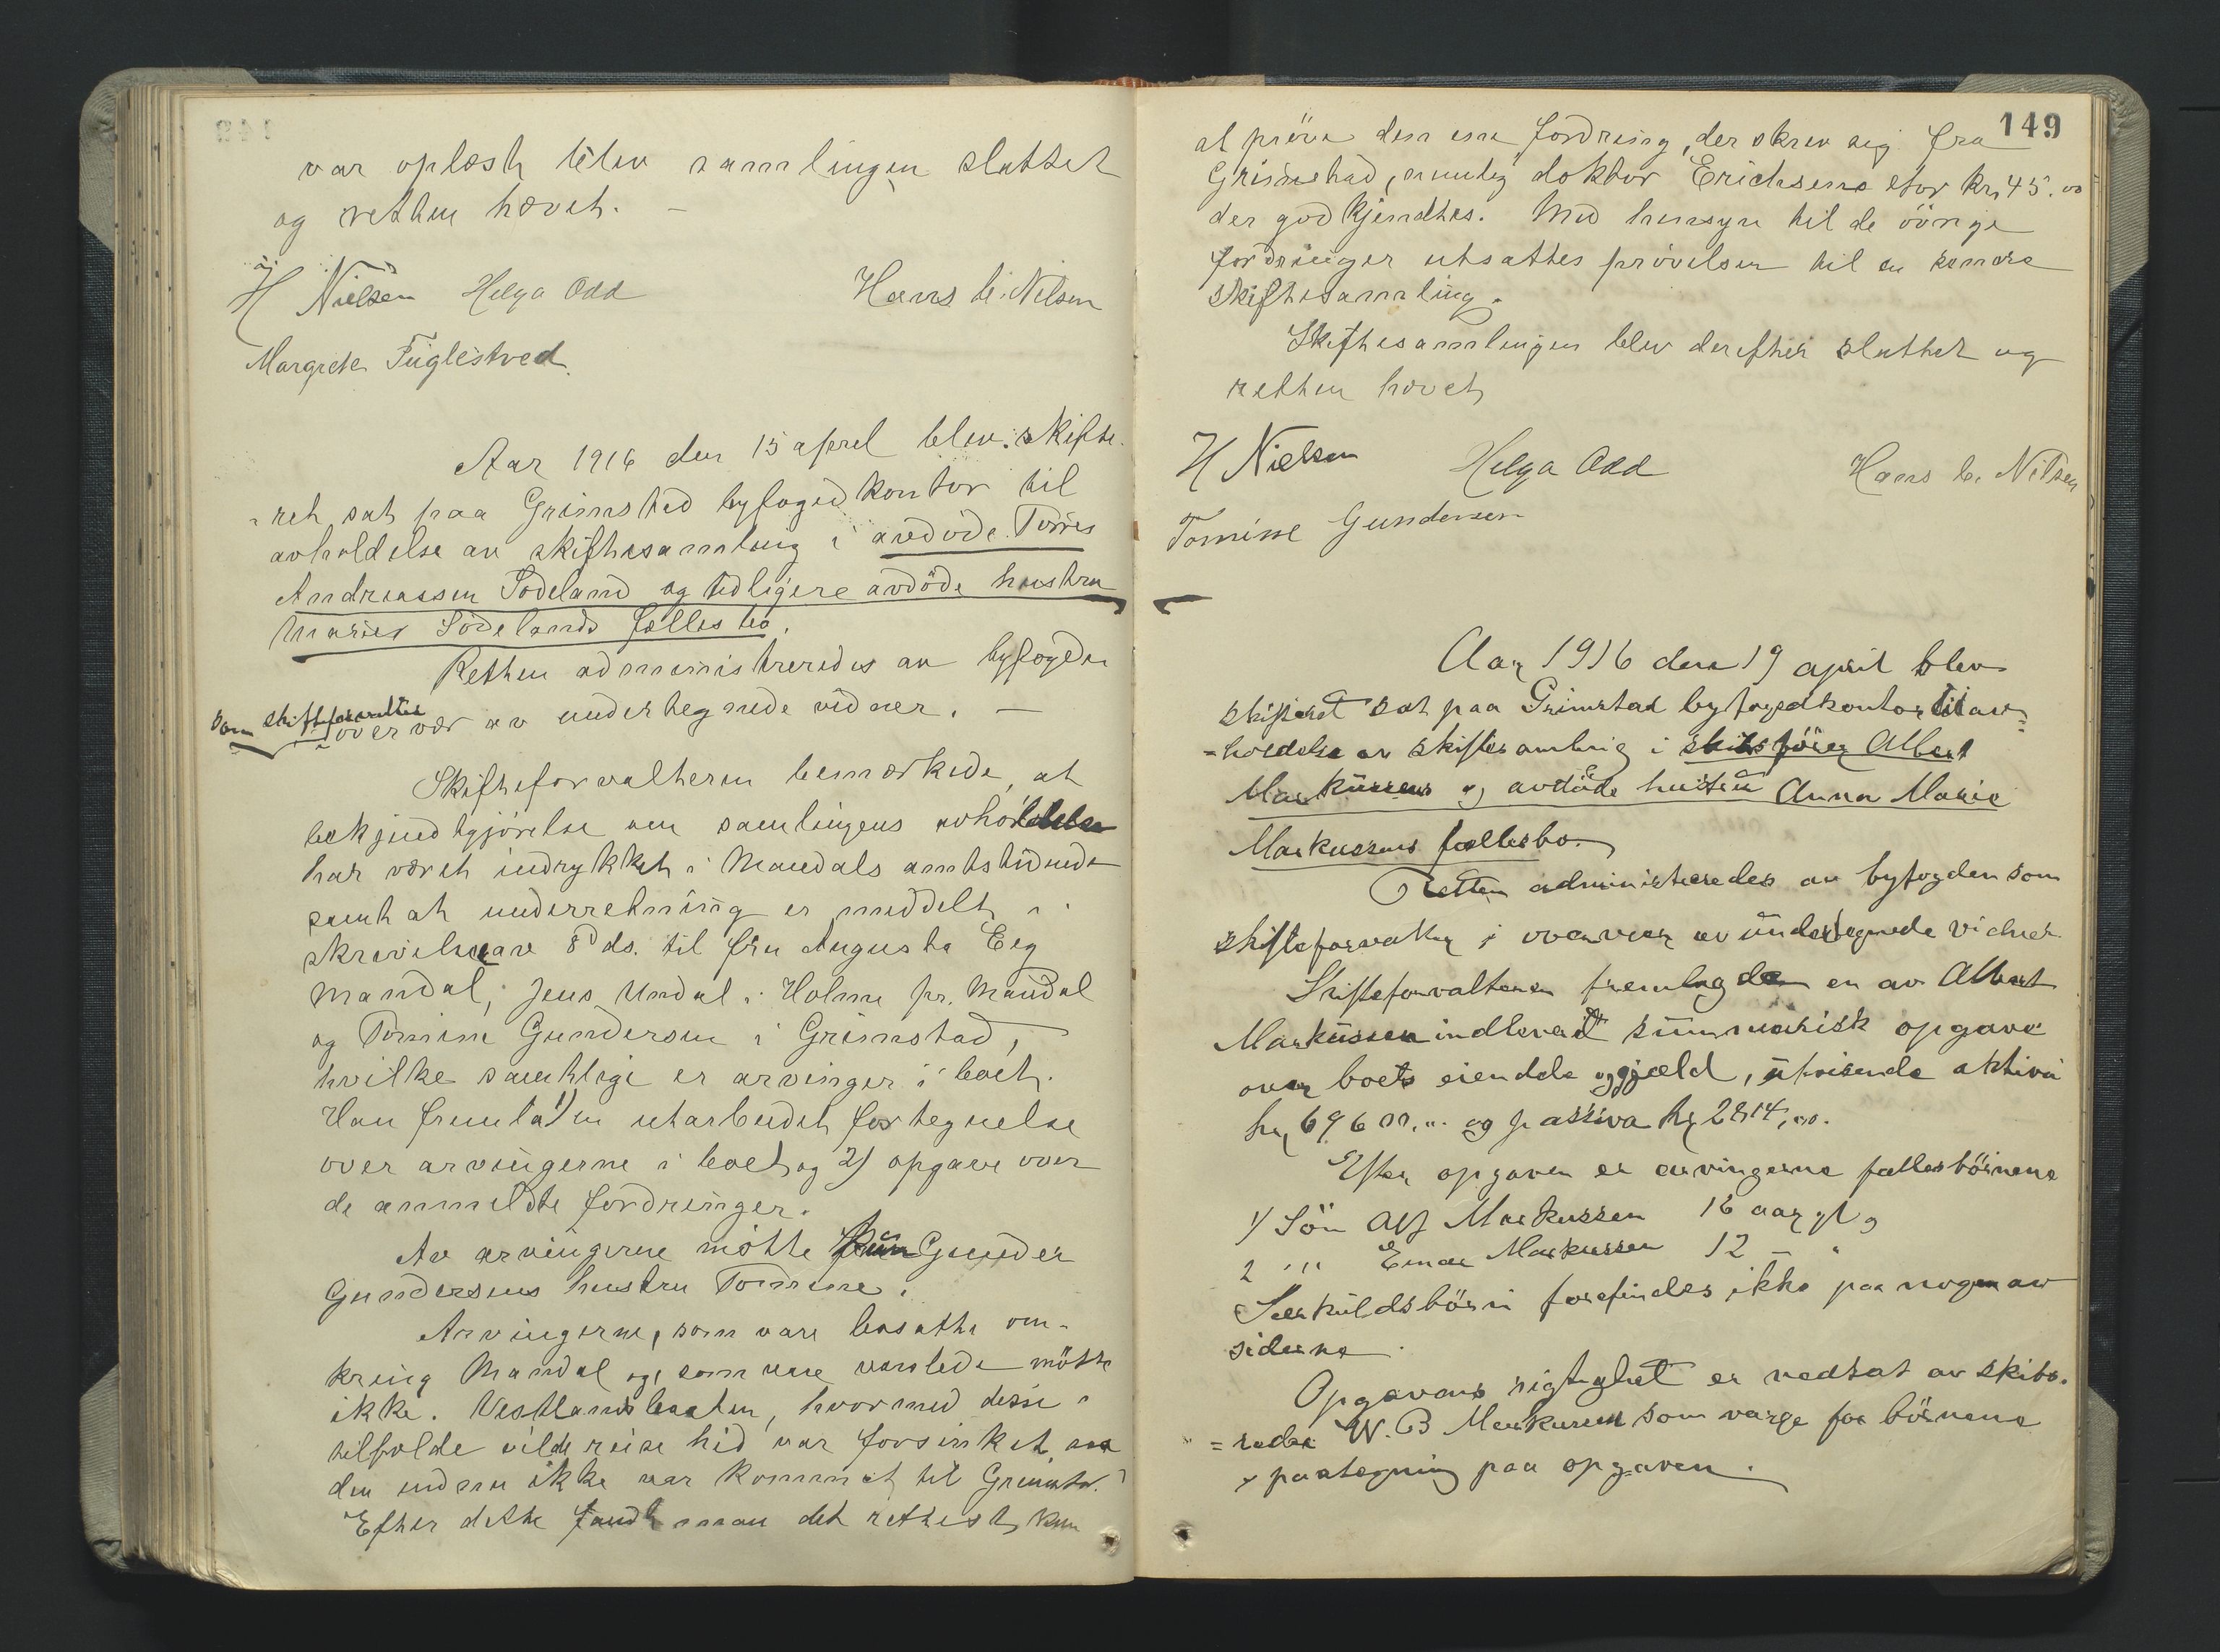 var oplæst blev samlingen sluttet
og retten hævet. –
H Nielsen Helga Odd Hans C. Nilsen
Margrete Fuglestved
Aar 1916 den 15 april blev skifte-
ret sat paa Grimstad byfogedkontor til
avholdelse av skiftesamling i avdøde Tørres
Andreassen Sødeland og tidligere avdöde hustru
Maries Södelands fællesbo.
Retten administreredes av byfogden
som skifteforvalter
i overvær av undertegnede vidner. –
Skifteforvalteren bemærkede, at
bekjendtgjörelse om samlingens avholdelse
har været indrykket i Mandals amtstidende
samt at underretning er meddelt i
skrivelse av 8 ds. til fru Augusta Eeg
Mandal, Jens Undal i Holme pr. Mandal
og Tomine Gundersen i Grimstad,
hvilke samtlige er arvinger i boet.
Han fremla 1) en utarbeidet fortegnelse
over arvingerne i boet og 2) opgave over
de anmeldte fordringer.
Av arvingerne mötte kun Gunder
Gundersens hustru Tomine.
Arvingerne, som vare bosatte om-
kring Mandal og som vare varslede mötte
ikke. Vestlandsbaaten, hvormed disse i
tilfælde vilde reise hid var forsinket, saa
den endnu ikke var kommet til Grimstad.
Efter dette fandt man det rettest kun
149
at pröve den ene fordring, der skrev sig fra
Grimstad, nemlig doktor Erichsens stor kr. 45.00
der godkjendtes. Med hensyn til de övrige
fordringer utsattes prövelsen til en senere
skiftesamling.
Skiftesamlingen blev derefter sluttet og
retten hævet
H Nielsen Helga Odd Hans C. Nilsen
Tomine Gundersen
Aar 1916 den 19 april blev
skifteret sat paa Grimstad byfogedkontor til av=
=holdelse av skiftesamling i skibsförer Albert
Markussens og avdöde hustru Anna Marie
Markussens fællesbo.
Retten administreredes av byfogden som
skifteforvalter i overvær av undertegnede vidner
Skifteforvalteren fremlagde en av Albert
Markussen indleveret summarisk opgave
over boets eiendele og gjæld, utvisende aktiva
kr. 69600,00 og passiva kr. 2814,00.
Efter opgaven er arvingerne fællesbörnene
1/ Sön Alf Markussen 16 aar gl. og
2 " " Einar Markussen 12 – "
Særkuldsbörn forefindes ikke paa nogen av
siderne.
Opgavens rigtighet er vedtat av skibs-
=reder W. B Markussen som værge for börnene
v paategning paa opgaven.